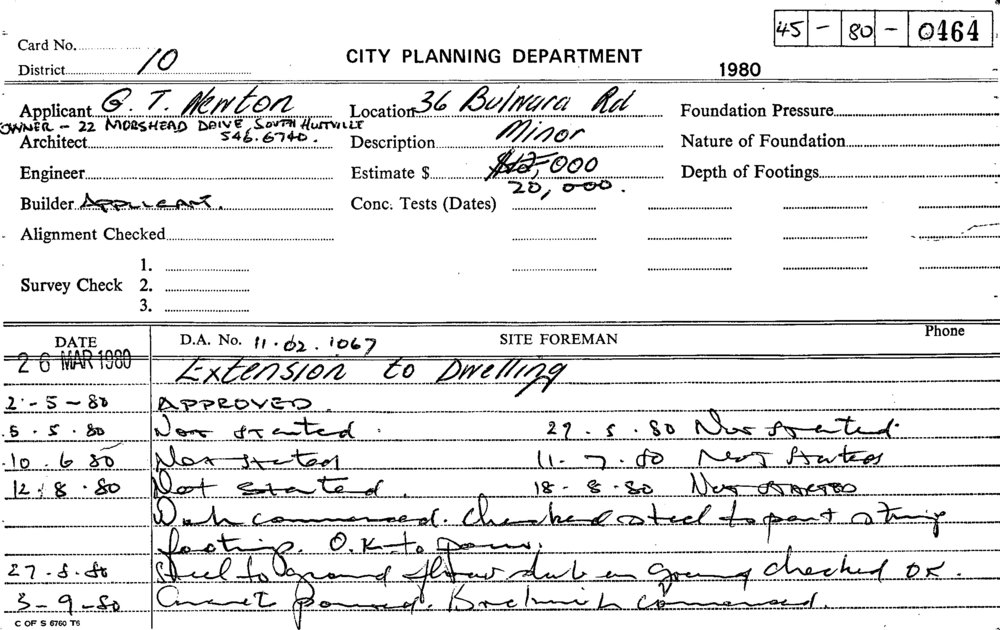 45 - 80 - 0464
Card No.
District 10
CITY PLANNING DEPARTMENT
1980
Applicant G. T. Newton Location 36 Bulwara Rd Foundation Pressure
OWNER - 22 MORSHEAD DRIVE SOUTH HURTVILLE
546.6740.
Architect Description Minor Nature of Foundation
Engineer Estimate $ 000 Depth of Footings
20,000.
Builder APPLICANT. Conc. Tests (Dates)
Alignment Checked
1.
Survey Check 2.
3.
DATE D.A. No. 11.02.1067 SITE FOREMAN Phone
26 MAR 1980 Extension to Dwelling
2-5-80 APPROVED.
5.5.80 Not started. 29.5.80 Not started.
10.6.80 Not started 11-7.80 Not started
12.8.80 Not started. 18-8-80 NOT STARTED
Work commenced. Checked steel to part strip
footing. O.K to pour.
27-8-80 Steel to ground floor slab on ground checked OK.
3-9-80 poured. Brickwork commenced.
C OF S 6760 T6